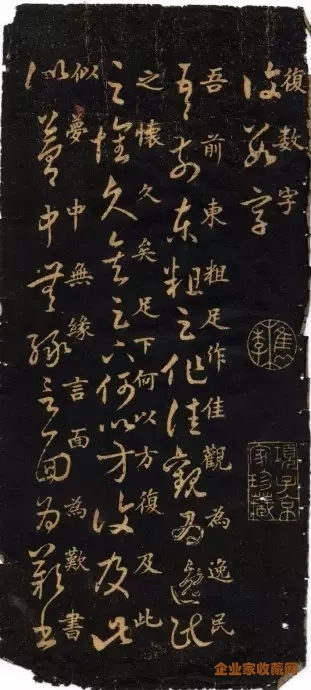 復數字
復數字
吾前東粗足作佳觀為逸民
吾前東粗足作佳觀為逸民
之懷久矣足下何以方復及此
之懷久矣足下何以方復及此
似夢中無緣言面為歎書
似夢中無緣言面為歎書
檇李
項子京家珍藏
企业家收藏网